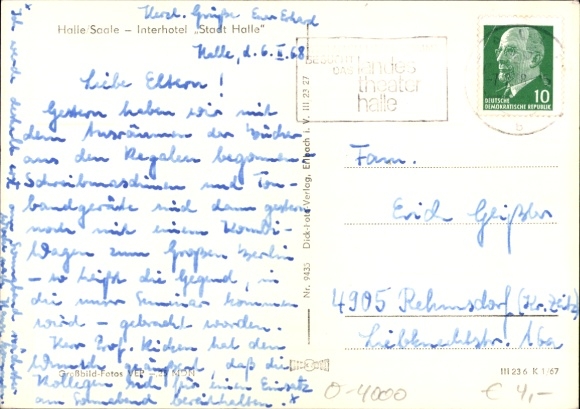 Herzl. Grüße Euer Eduard
Halle/Saale – Interhotel „Stadt Halle"
Halle, d. 6. II. 68
Liebe Eltern!
Gestern haben wir mit
dem Ausräumen der Bücher
aus den Regalen begonnen.
Schreibmaschinen und Ton-
bandgeräte sind dann gestern
noch mit einem Kombi-
Wagen zum Großen Berlin
– so heißt die Gegend, in
die unser Seminar kommen
wird – gebracht worden.
Herr Prof. hat den
Wunsch geäußert, daß die
Kollegen sich für einen Einsatz
am Sonnabend bereithalten. *
* Ich werde deshalb erst am Sonnabend
Großbild-Fotos VEB NDN
Nr. 9435 Dick-Foto-Verlag, Erlbach i. V. III 23 27
BESUCHT
DAS
landes
theater
halle
10
DEUTSCHE
DEMOKRATISCHE REPUBLIK
Fam.
Erich Geißler
4905 Rehmsdorf (Kr. Zeitz)
Liebknechtstr. 16a
III 23 6 K 1/67
O-4000
€ 4,-